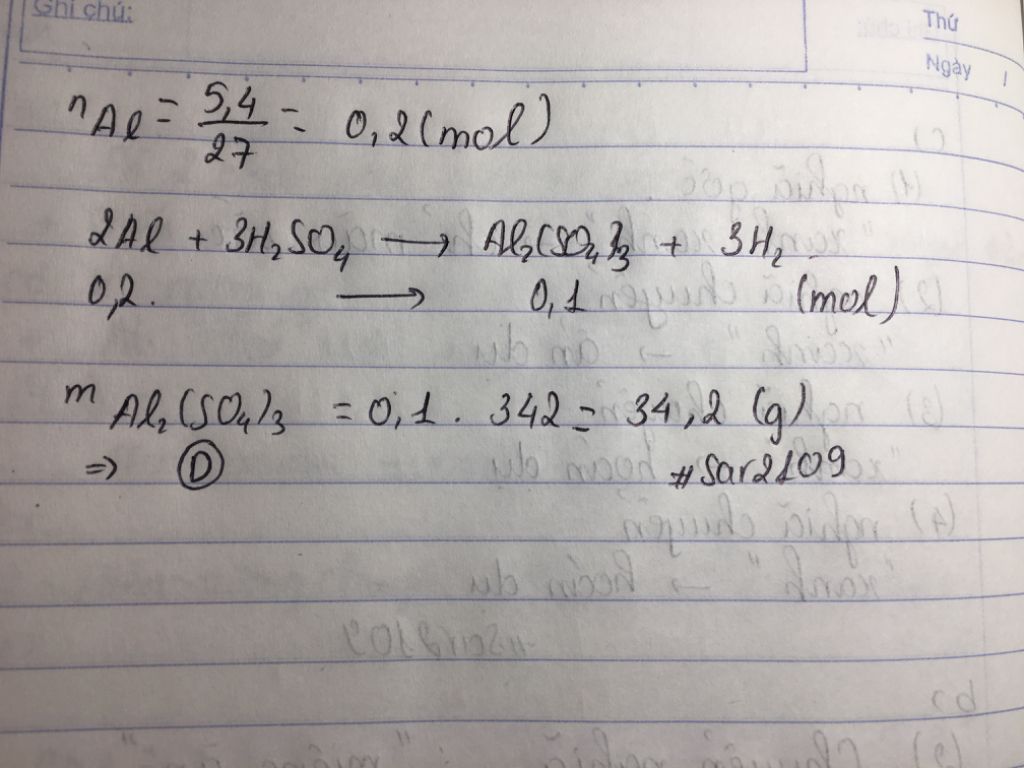 Ghi chú:
Thứ
Ngày
nAl = 5,4/27 = 0,2 (mol)
2Al + 3H₂SO₄ → Al₂(SO₄)₃ + 3H₂
0,2. → 0,1 (mol)
mAl₂(SO₄)₃ = 0,1 . 342 = 34,2 (g)
=> D
#sar2109